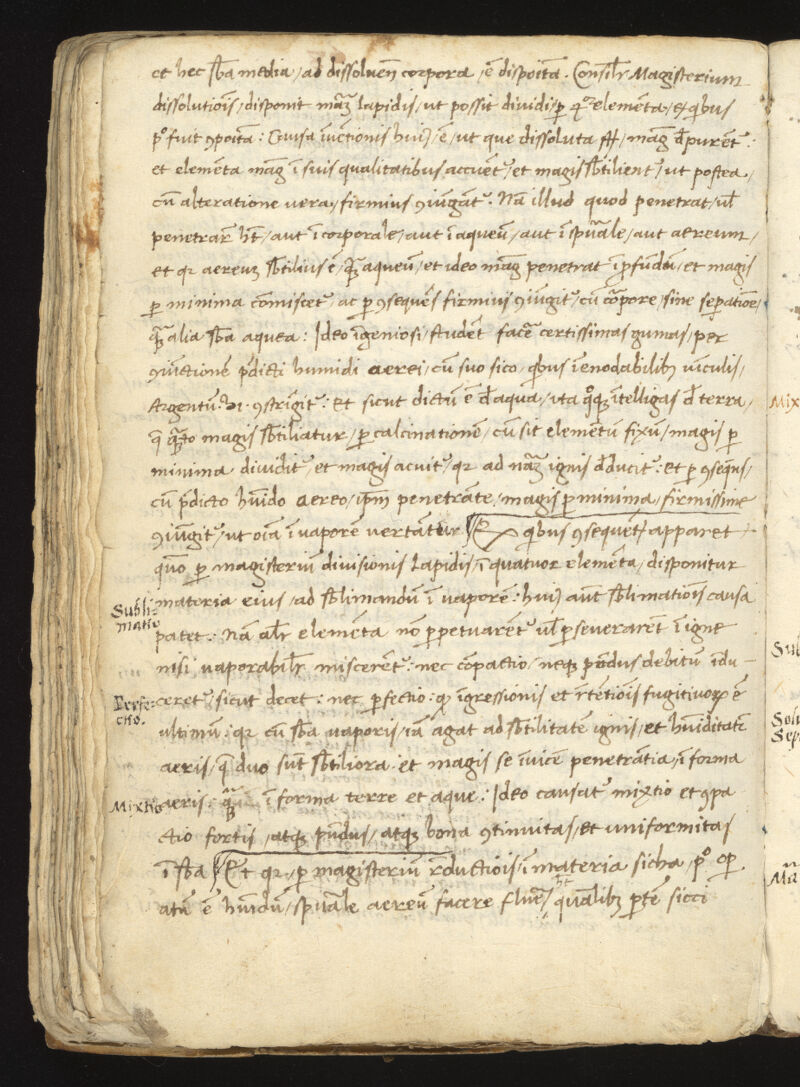 et hec sb̄a media / ad dissoluen̄ corpora / ē dispoitā. Consil̄r Magisterium
dissolutiōis / disponit mām̄ lapidis / ut possit diuidi / ꝑ 4ᵒʳ elemēta / ex qͥbus
pᵒ fuit ꝯpoita : Causa iūctionis huiꝰ / ē / ut que dissoluta st̄ / maḡ d̄purēt᷑ :
et elemēta maḡ ī suis qualitatibus accuēt᷑ / et magis sb̄tilient᷑ / ut postea /
cū alteratione vera / firmius ꝯiūgāt᷑. Nā illud quod penetrat / ul̄
penetrar̄ hēt / aut īcorporale / aut īaqueū / aut ī spūale / aut aereum /
et qr aereuꝫ sb̄tilius ē / qͣꝫ aqueū / et ideo maḡ penetrat ī ꝓfūdū / et magis
ꝑ minima cōmiscet᷑ / ac ꝑ ꝯsequēs firmius ꝯiūgit᷑ / cū corpore / sine seꝑatiōe /
qͣꝫ alia sb̄a aquea : Ideo īgeniosi / studēt facē certissimas gumas / per
ꝯiūctionē p̄dicti humidi aerei / cū suo sico / qͥbus īenodabilibꝫ uīculis /
Argentū : vi · ꝯstrīgit᷑ : Et sicut dictū ē d̄ aqua / ita qᵒqꝫ ītelligas d̄ terra /
q̄ qͣto magis sb̄tiliatur / ꝑ calcinationē / cū sit elemētū fixū / magis ꝑ
minima diuidit᷑ / et magis acuit᷑ / qr ad nām̄ ignis d̄ducit᷑ : et ꝑ ꝯseqn̄s /
cū p̄dicto hūido aereo / ip̄m penetrāte / magis ꝑ minima / firmissime
ꝯiūgit᷑ / ut oīa ī uaporē vertātur / Ex qͥbus ꝯsequēt᷑ apparet
quō ꝑ magisteriū diuisionis lapidis / ī quatuor elemēta / disponitur
Subli-
matio
materia eius / ad sb̄limandū ī uaporē : huiꝰ aūt sb̄limatiōis causa
patet : Nā al̄r elemēta nō ꝑpetuarēt᷑ ul̄ ꝑseuerarēt ī igne
nisi uaporabil̄r miscerēt᷑ : nec cōpactio / neqꝫ pōdus debitū īdu-
Perfe-
ctio.
ceret᷑ / sicut decet : nec ꝑfectio : qͥ īgressionis et rētētiōis fugitiuoꝝ ē
ultimū : qr cū sb̄a uaporis / iā agat ad sb̄tilitatē ignis / et hūiditatē
aeris / q̄ duo sūt sb̄tiliora et magis se īuicē penetrātia / ī forma
Mixtio
aeris : qͣꝫ ī forma terre et aque : Ideo causat᷑ mixtio et ꝯpa-
ctio fortis / atqꝫ pōdus / atqꝫ bona ꝯtinuitas / et uniformitas
ī sb̄a / Et qr / ꝑ magisteriū rēductiōis / ī materia sicha / pᵒ oꝑ
atū ē hūidū / spūale aereū facere fluēs / qualibꝫ ꝑtē sicci